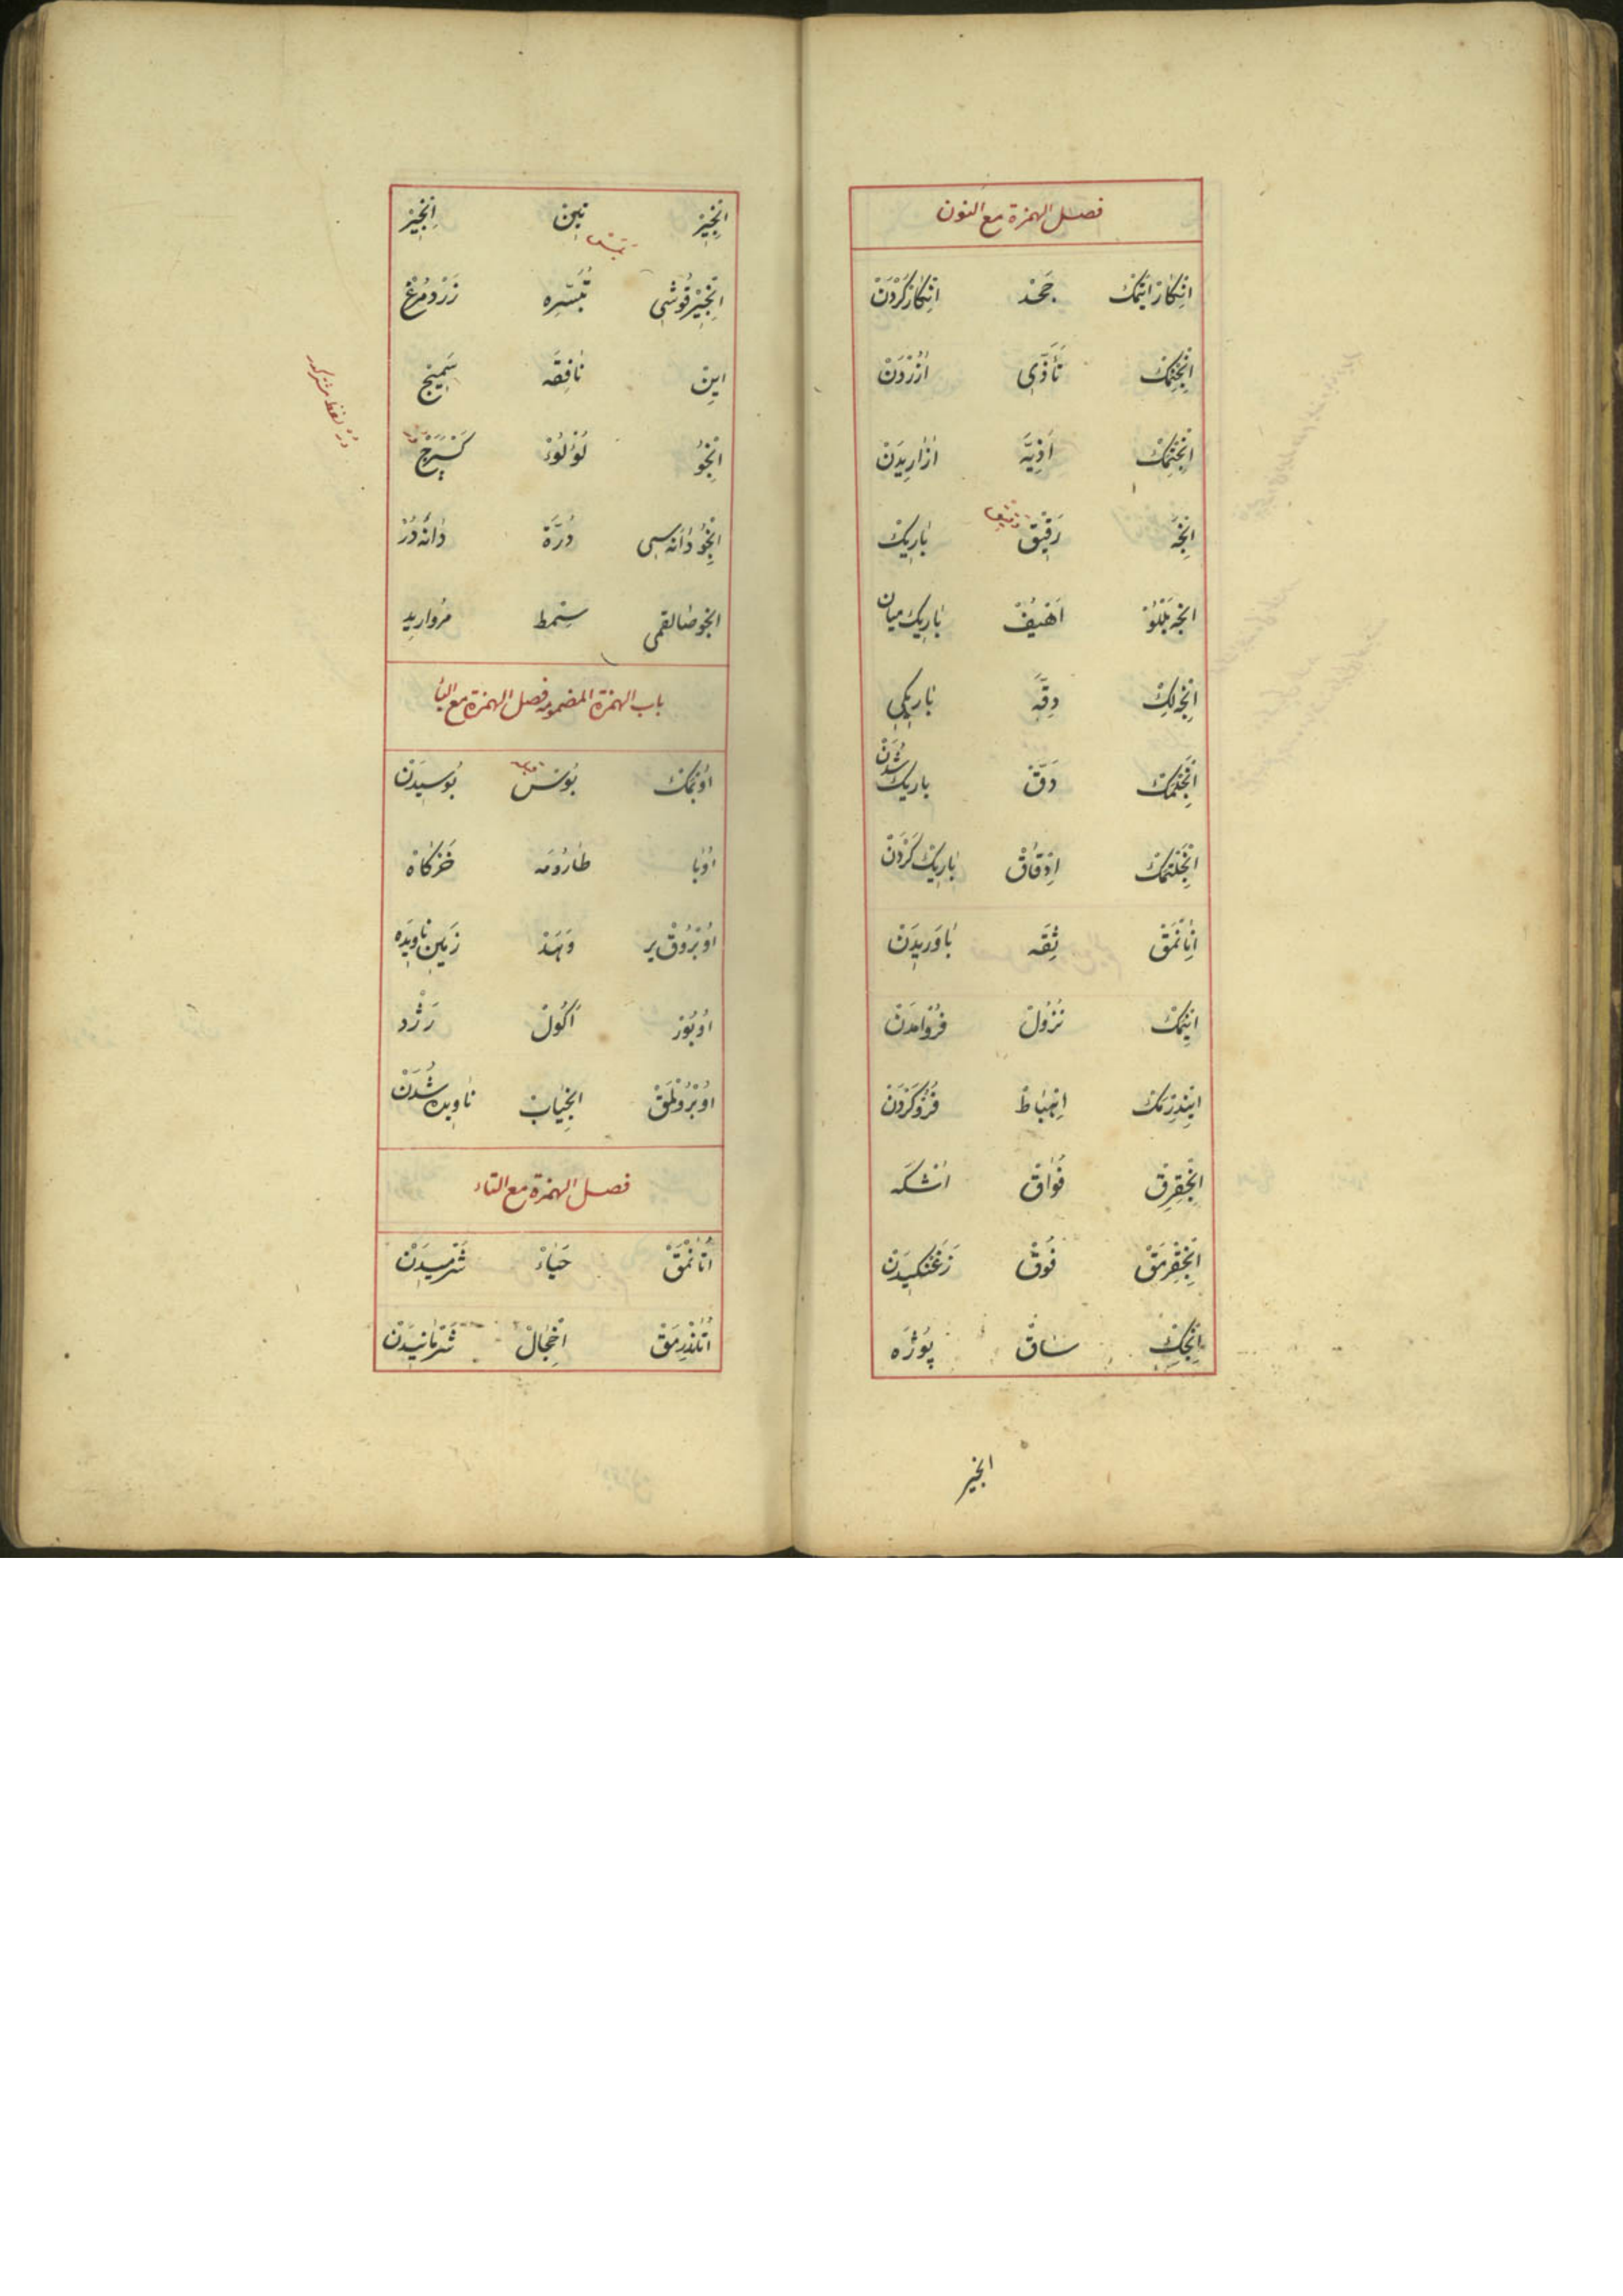 فصل الهمزة مع النون
اِنْكَارْ اِتْمَكْ جَحْد اِنْكَارْكَرْدَنْ
اِنْجِنْمَكْ تَأَذِّى اٰزُرْدَنْ
اِنْجِتْمَكْ اَذِيَّه اٰزَارِيدَنْ
اِنْجَه رَقِيقْ بَارِيكْ
انجه بللو اَهْيَفْ بَارِيك ميان
اِنْجَه لِكْ دِقَّه بَارِيكِى
اِنْجَلْمَكْ دَقّ باريك شُدَنْ
اِنْجَلْتْمَكْ اِدْقَاقْ بَارِيكْ كَرْدَنْ
اِنَانْمَقْ ثِقَه بَاوَرِيدَنْ
اِينْمَكْ نُزُولْ فُرُوامَدَنْ
اِينْدِرْمَكْ اِهْبَاطْ فُرُوكَرْدَنْ
اِنْجِقِرِقْ فُوَاقْ اشكه
اِنْجِقِرْمَقْ فُوقْ زَغَنْكِيدَنْ
اِنْجِكْ سَاقْ پُوژَه
انجير
اِنْجِيرْ تِين اِنْجِيرْ
اِنْجِيرْ قُوشِى تُبَشِّره زَرْدْمُرغْ
اِين نَافِقَه سَمِينج
اِنْجُو لُؤْلُؤْ
اِنْجُو دَانَه سِى دُرَّة دَانَه دُرْ
انجو صالقمى سِمْط مرواريد
باب الهمزة المضمومه فصل الهمزة مع البا
اُوپْمَكْ بُوس بُوسِيدَنْ
اُوبَا طَارُومَه خَرْكَاهْ
اُوبْرُوقْ ير وَهَدْ زَمِين ناويده
اُوبُورْ اَكُولْ رَژْد
اُوبْرُولْمَقْ انجياب ناويده شُدَنْ
فصل الهمزة مع التاء
اُتَانْمَقْ حَيَاءْ شَرْمِيدَنْ
اُتَنْدِرْمَقْ اِخْجَالْ شَرْمَانِيدَنْ